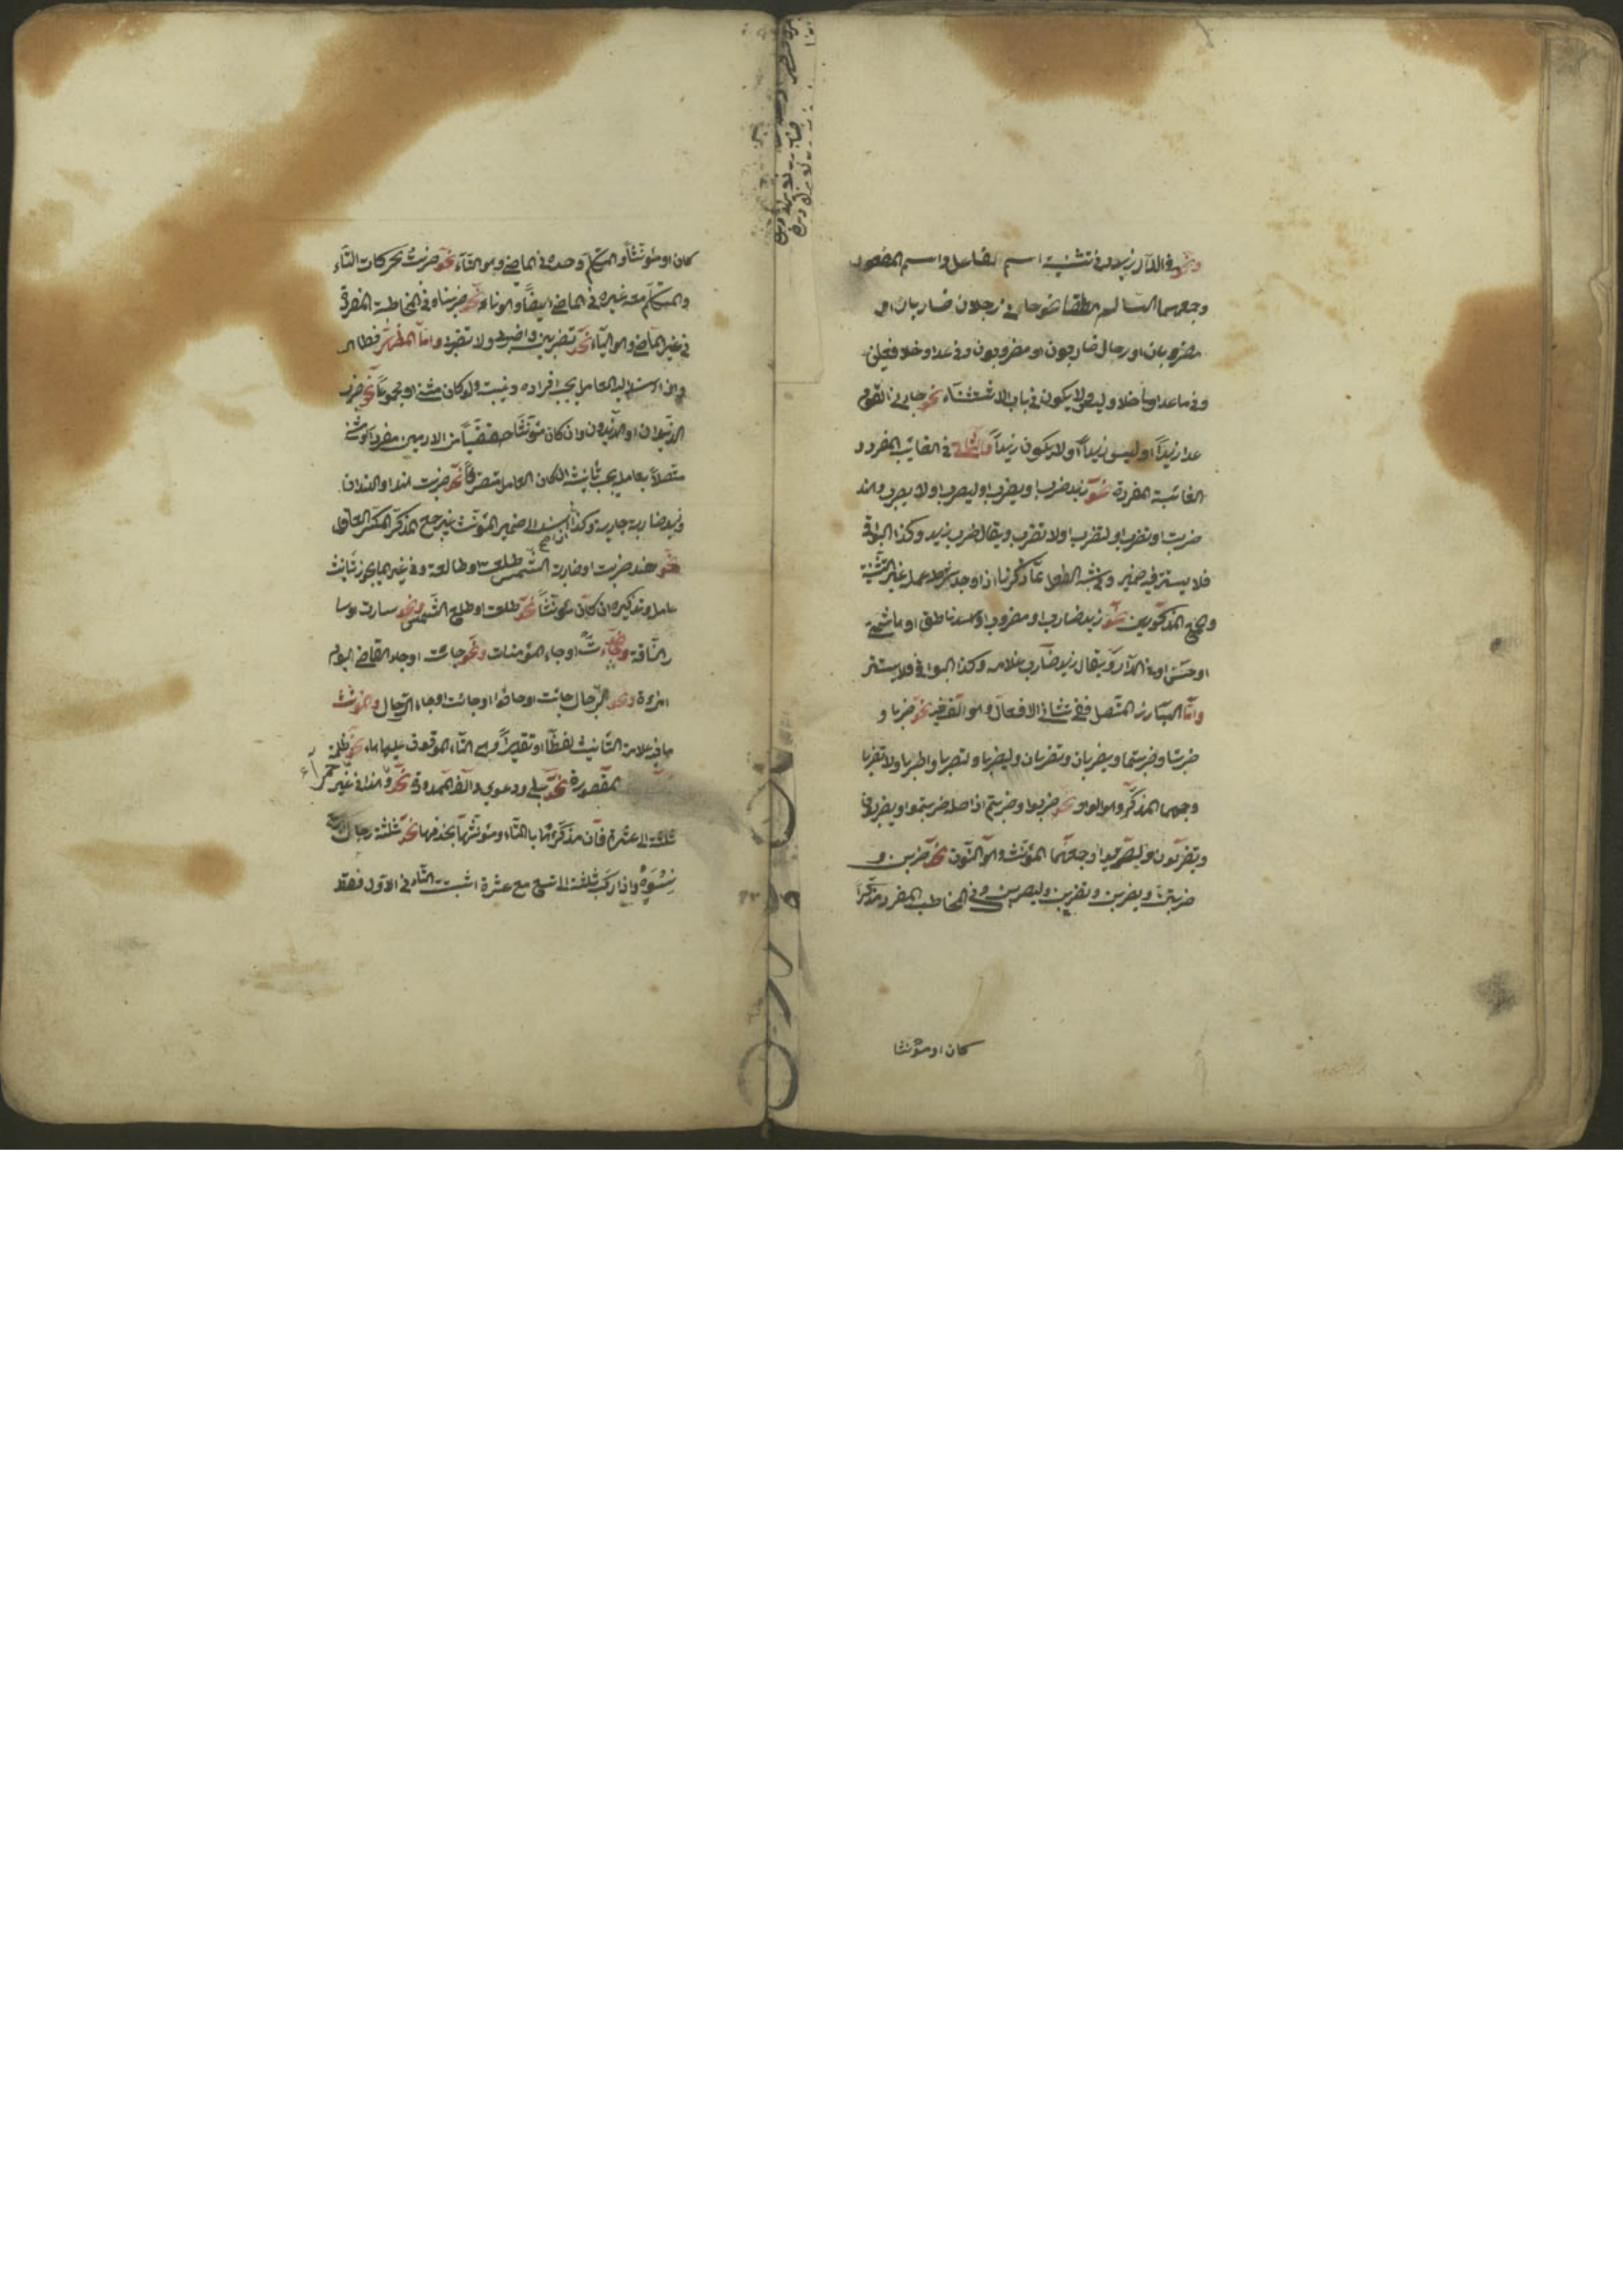 ونحو فى الدار زيد او فى تثنية اسم الفاعل واسم المفعول
وجمعهما السالم مطلقا نحو جاءنى رجلان ضاربان او
مضروبان او رجال ضاربون او مضروبون وفى عدا وخلا فعلين
وفى ما عدا وما خلا وليس ولا يكون فى باب الاستثناء نحو جاءنى القوم
عدا زيداً او ليس زيداً او لا يكون زيداً والثانى فى الغائب المفرد و
الغائبة المفردة نحو زيد ضرب او يضرب او ليضرب او لا يضرب وهند
ضربت او تضرب او لتضرب او لا تضرب ويقال ضرب زيد وكذا البواقى
فلا يستتر فيه ضمير وفى شبه الفعل مما ذكرنا اذا وجد شرط عمله غير التثنية
والجمع المذكورين نحو زيد ضارب او مضروب او اسد ناطق او هاشمى
او حسن او فى الدار ويقال زيد ضارب غلامه وكذا البواقى فلا يستتر
واما البارز المتصل ففى تثانى الافعال وهو الف نحو ضربا و
ضربتا وضربتما ويضربان وتضربان وليضربا ولتضربا واضربا ولا تضربا
وجمعها المذكر وهو الواو نحو ضربوا وضربتم اذ اصله ضربتموا ويضربون
وتضربون وليضربوا وجمعها المؤنث وهو النون نحو ضربن و
ضربتن ويضربن وتضربن وليضربن وفى المخاطب المفرد مذكرا
كان او مؤنثا
كان او مؤنثا والمتكلم وحده فى الماضى وهو التاء نحو ضربت بحركات التاء
والمتكلم معه غيره فى الماضى ايضاً وهو نا نحو ضربنا وفى المخاطبة المفردة
فى غير الماضى وهو الياء نحو تضربين واضربى ولا تضربى واما المظهر فظاهر
واذا اسند اليه العامل يجب افراده وغيبته ولو كان مثنى او مجموعاً نحو ضرب
الزيدان او الزيدون وان كان مؤنثا حقيقياً من الادميين مفردا او مثنى
متصلاً بعامله يجب تأنيثه ان كان العامل متصرفاً نحو ضربت هند او الهندان
وزيد ضاربة جاريته وكذا اذا اسند الى ضمير المؤنث غير جمع المذكر المكسر العاقل
نحو هند ضربت او ضاربة الشمس طلعت او طالعة وفى غيرهما يجوز تأنيث
عامله وتذكيره ان كان مؤنثاً نحو طلعت او طلع الشمس ونحو سارت او سا
ر الناقة ونحو جاءت او جاء المؤمنات ونحو جائت او جاء القاضى اليوم
امرءة ونحو الرجال جائت او جاؤا او جائت او جاء الرجال والمؤنث
ما فيه علامة التانيث لفظاً او تقديراً وهى التاء الموقوف عليها هاء نحو ظلمة
المقصورة نحو حبلى ودعوى والف الممدودة نحو حمرآء وهذا فى غير
ثلثة الى عشرة فان مذكرها بالتاء ومؤنثها بحذفها نحو ثلثة رجال
نِسْوَةٍ واذا ركب ثلثة الى تسع مع عشرة اثبت التاء فى الاول فقط